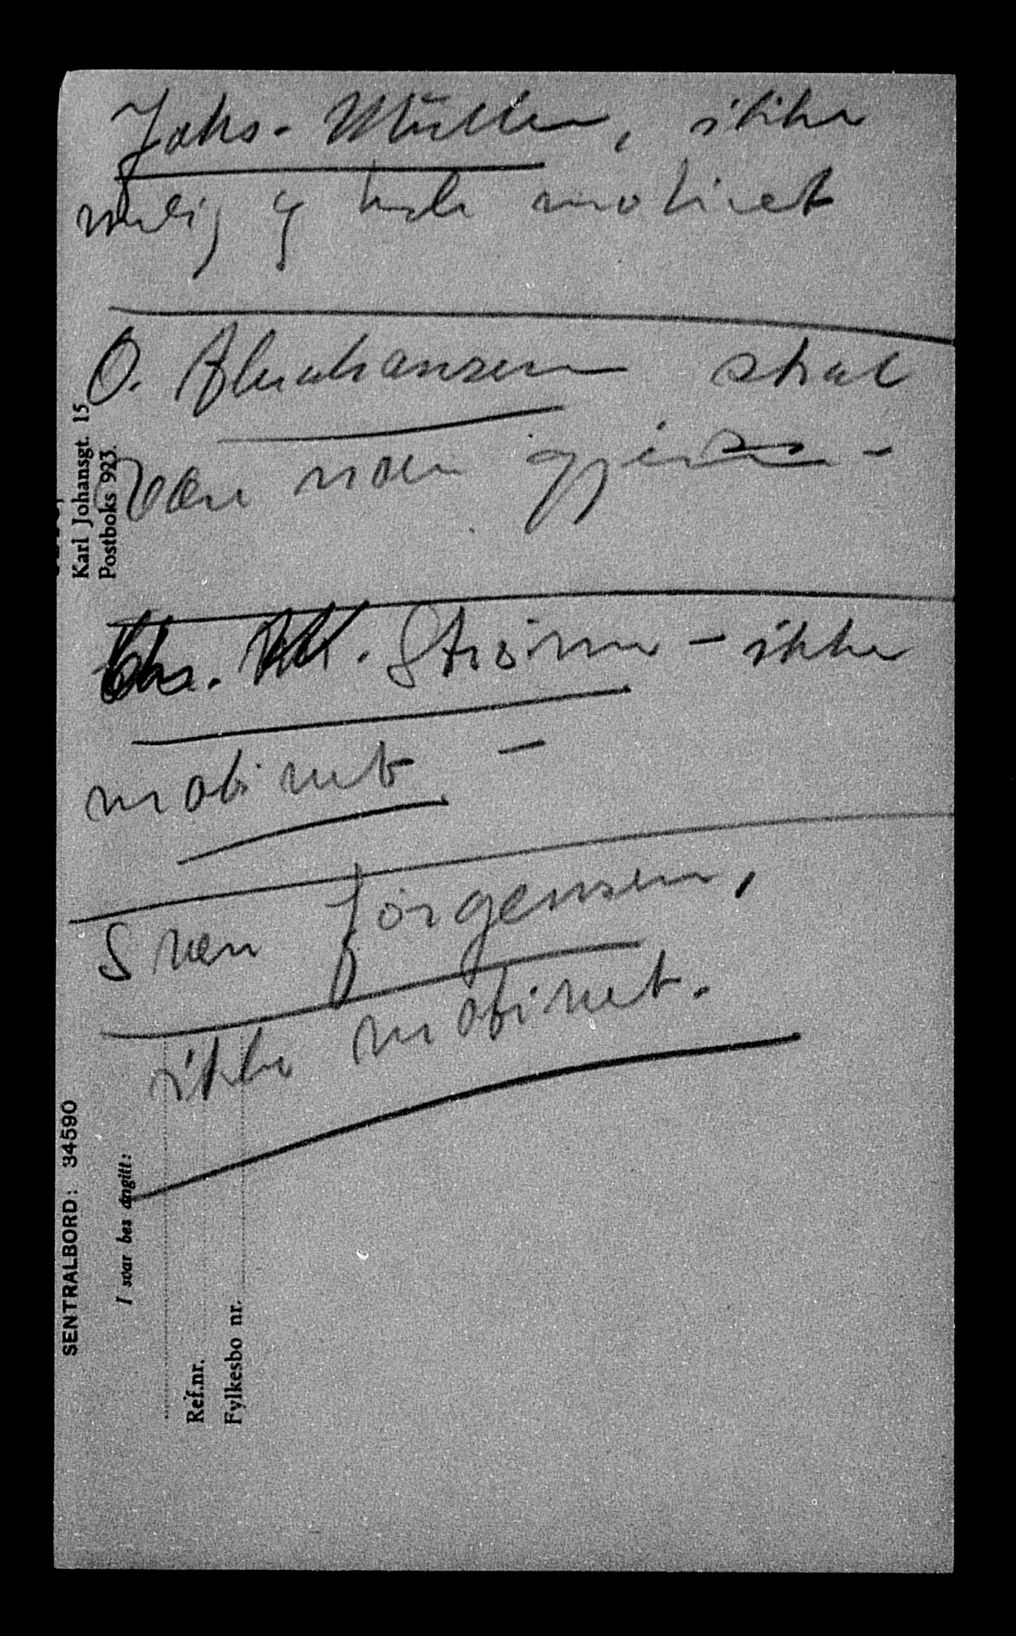 Jahs. Müller, ikke
mulig motivet
O. Abrahamsen skal
være noen
Strøm - ikke
motivet -
Sven Jørgensen,
ikke motivet.
Karl Johansgt. 15
Postboks 923.
SENTRALBORD: 34590
I svar bes angitt:
Ref.nr.
Fylkesbo nr.